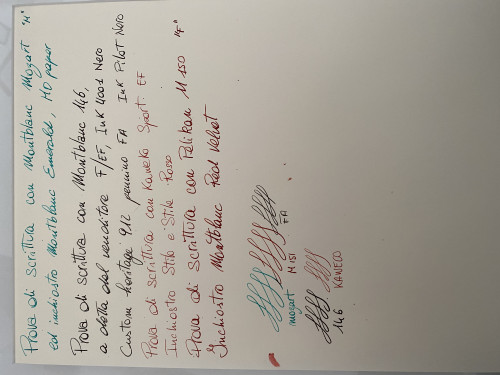 Prova di scrittura con Montblanc Mozart "M"
ed inchiostro Montblanc Emerald, MD paper
Prova di scrittura con Montblanc 146,
a detta del venditore F/EF, Ink Nero
Custom heritage 912 pennino FA Ink Pilot Nero
Prova di scrittura con Kaweko Sport EF
Inchiostro Stile e Stile Rosso
Prova di scrittura con Pelikan M 150 "F"
Inchiostro Montblanc Red Velvet
Mozart
M 151
FA
146
KAWECO